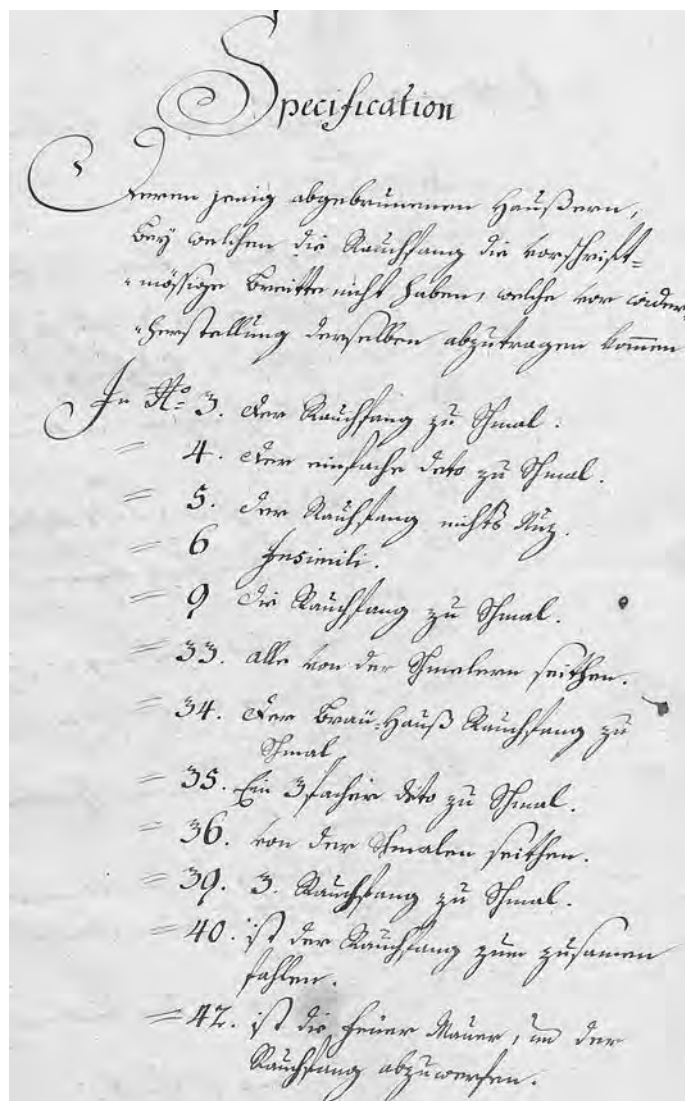 Specification
Deren jenig abgebrunenen Haußern,
bey welchen die Rauchfang die vorschrift=
=mässige breitte nicht haben, welche vor wider=
=herstellung derselben abzutragen komen
In No. 3. der Rauchfang zu Schmal.
= 4. der einfache deto zu Schmal.
= 5. der Rauchfang nichts Nuz.
= 6 Insimili.
= 9 die Rauchfang zu Schmal.
= 33. alle von der Schmelern seithen.
= 34. der Bräu=Hauß Rauchfang zu
Schmal
= 35. Ein 3facher deto zu Schmal.
= 36. von der Schmalen seithen.
= 39. 3. Rauchfang zu Schmal.
= 40. ist der Rauchfang zum zusamen
fahlen.
= 42. ist die Feüer Mauer, und der
Rauchfang abzuwerfen.